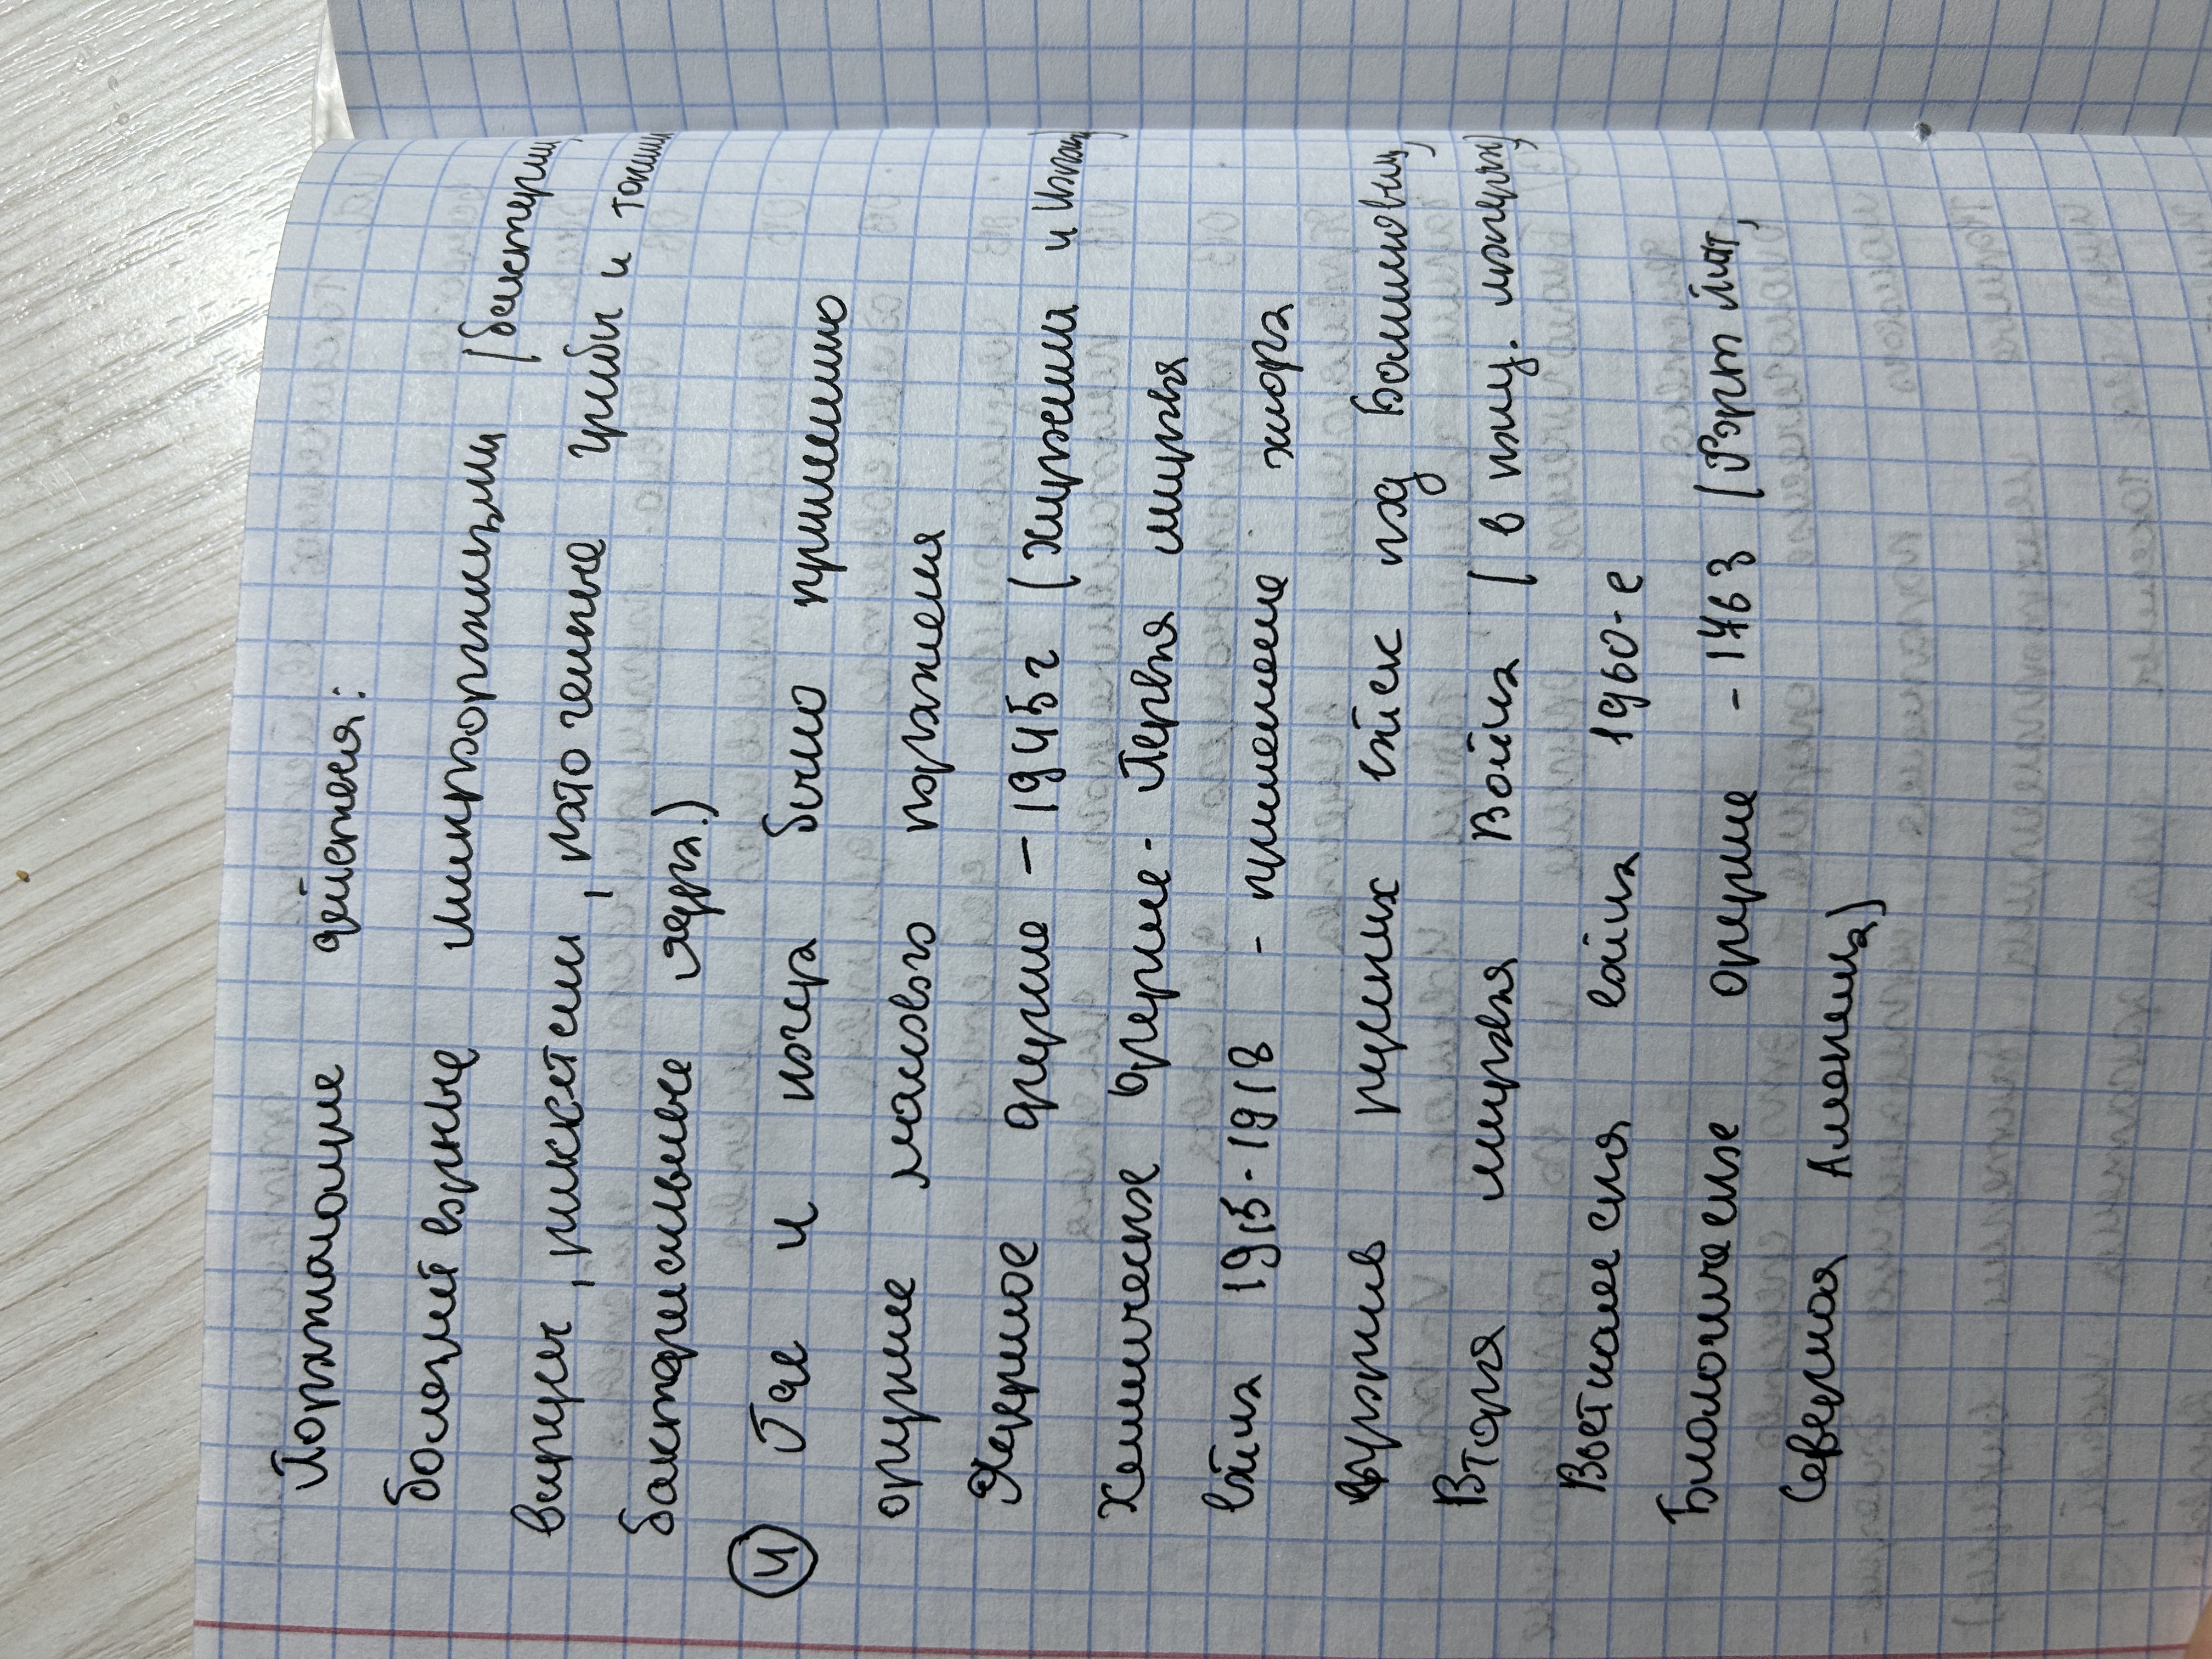 Поражающие действия:
болезнетворные микроорганизмы (бактерии,
вирусы, риккетсии, патогенные грибы и токсин
бактериальные ядра.)
④ Где и когда было применино
оружие массового поражения
Ядерное оружие – 1945 г (Хиросима и
Химическое оружие - Первая мировая
война 1915-1918 - применение хлора
русских атак под Болимовым,
Вторая мировая Война (в
Вьетнамская война 1960-е
Биологическое оружие - 1763 (Форт Питт,
Северная Америка)